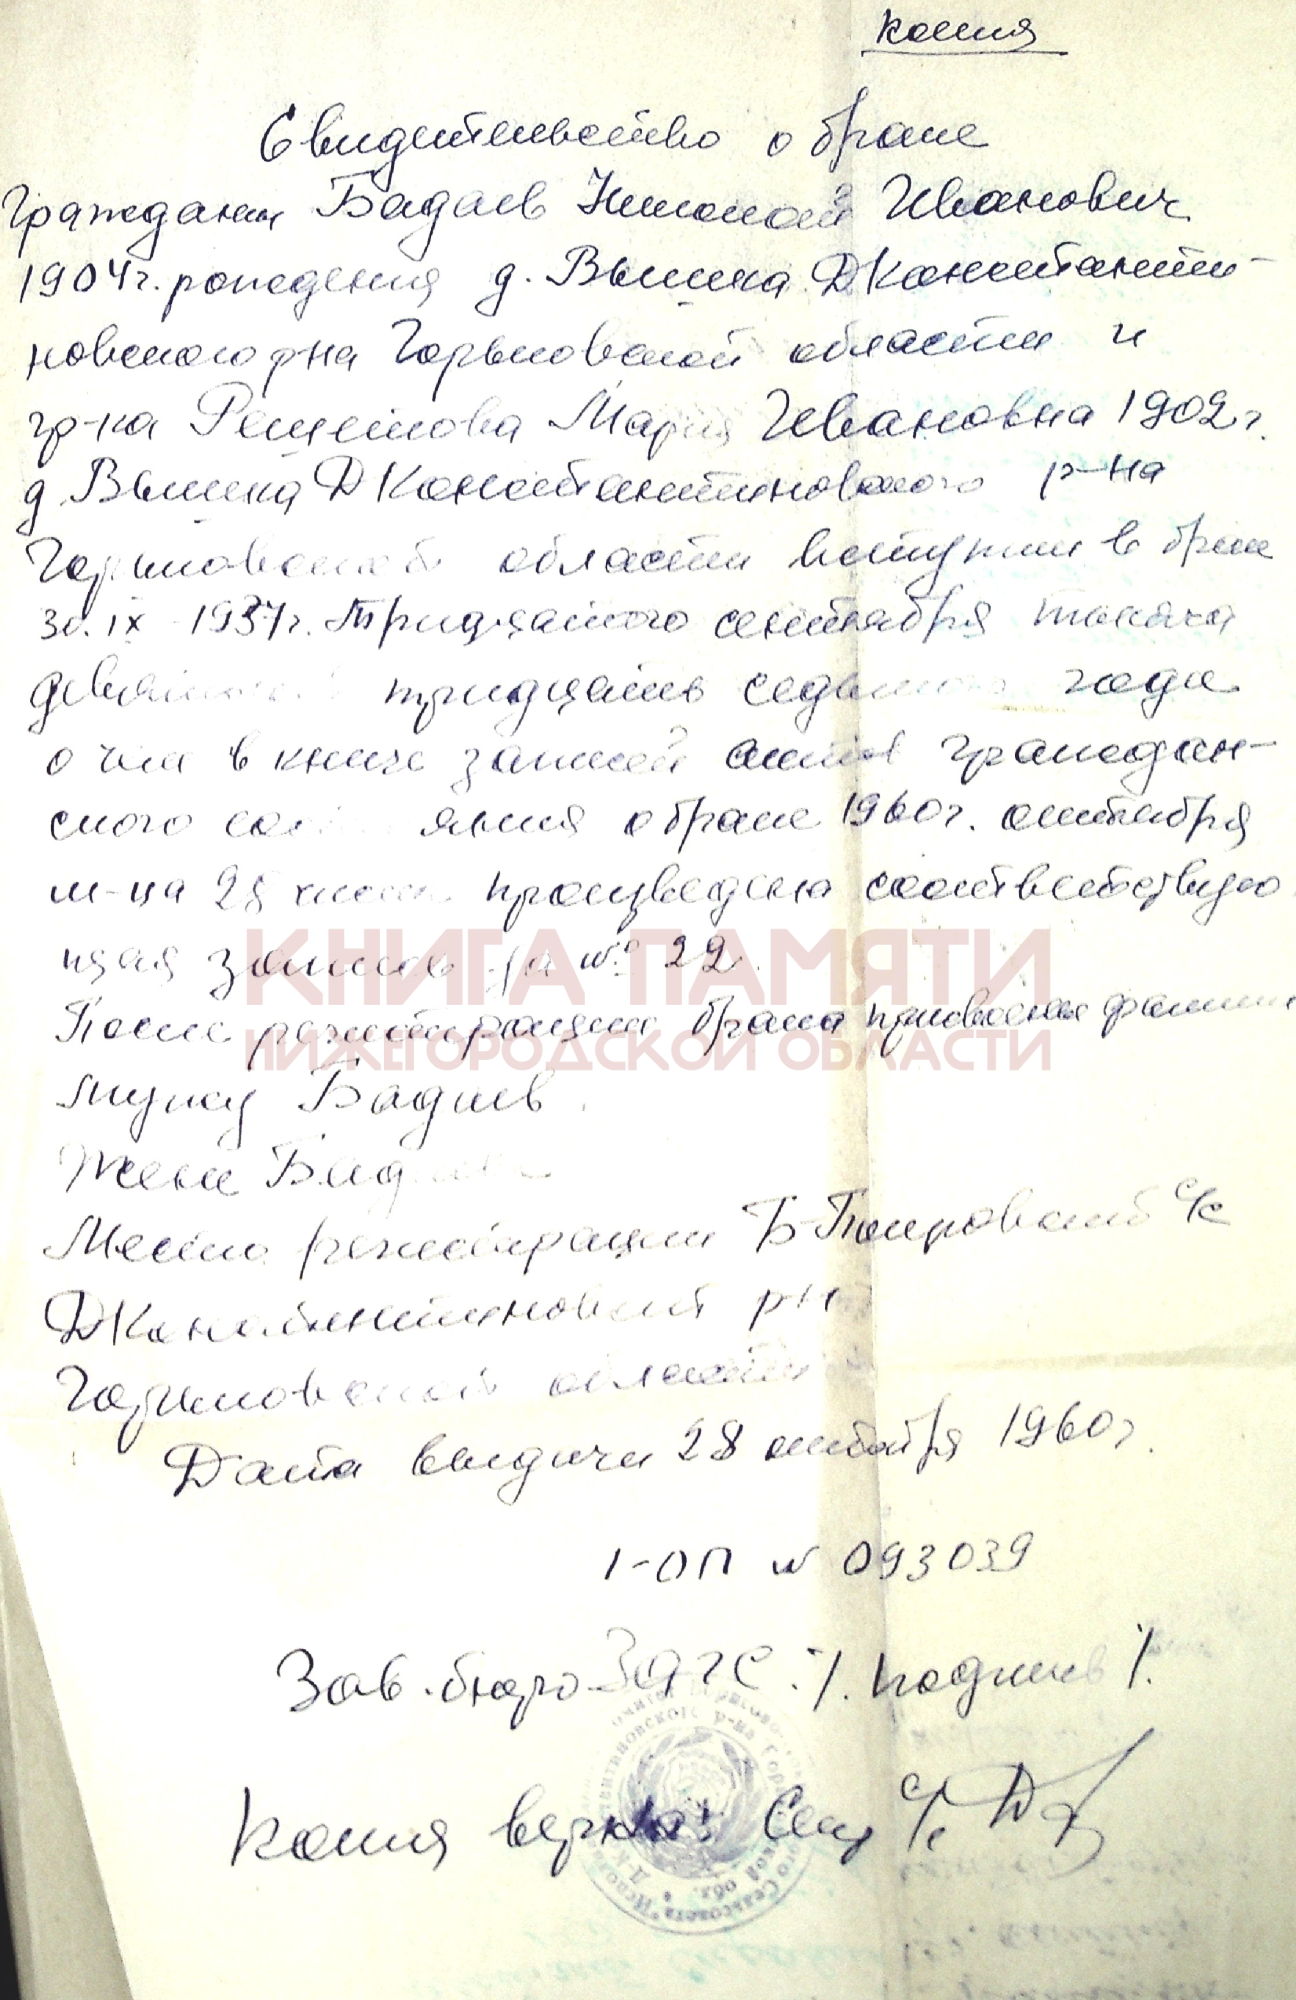 копия
Свидетельство о браке
Гражданин Бадаев Николай Иванович
1904 г. рождения д. Вышка ДКонстанти-
новского р-на Горьковской области и
гр-ка Решетова Мария Ивановна 1902 г.
д. Вышка ДКонстантиновского р-на
Горьковской области вступили в брак
30. IX 1937 г. Тридцатого сентября тысяча
девятьсот тридцать седьмого года
о чем в книге записей актов граждан-
ского состояния о браке 1960 г. октября
м-ца 28 числа произведена соответствую
щая запись за № 22.
КНИГА ПАМЯТИ
После регистрации брака присвоены фамилии
НИЖЕГОРОДСКОЙ ОБЛАСТИ
мужу Бадаев.
Жене Бадаева
Место регистрации Б-Покровский с/с
ДКонстантиновский р-н
Горьковской области
Дата выдачи 28 октября 1960 г.
1-ОП № 093039
Зав. бюро ЗАГС ./. подпись /.
Копия верна: Секр с/с